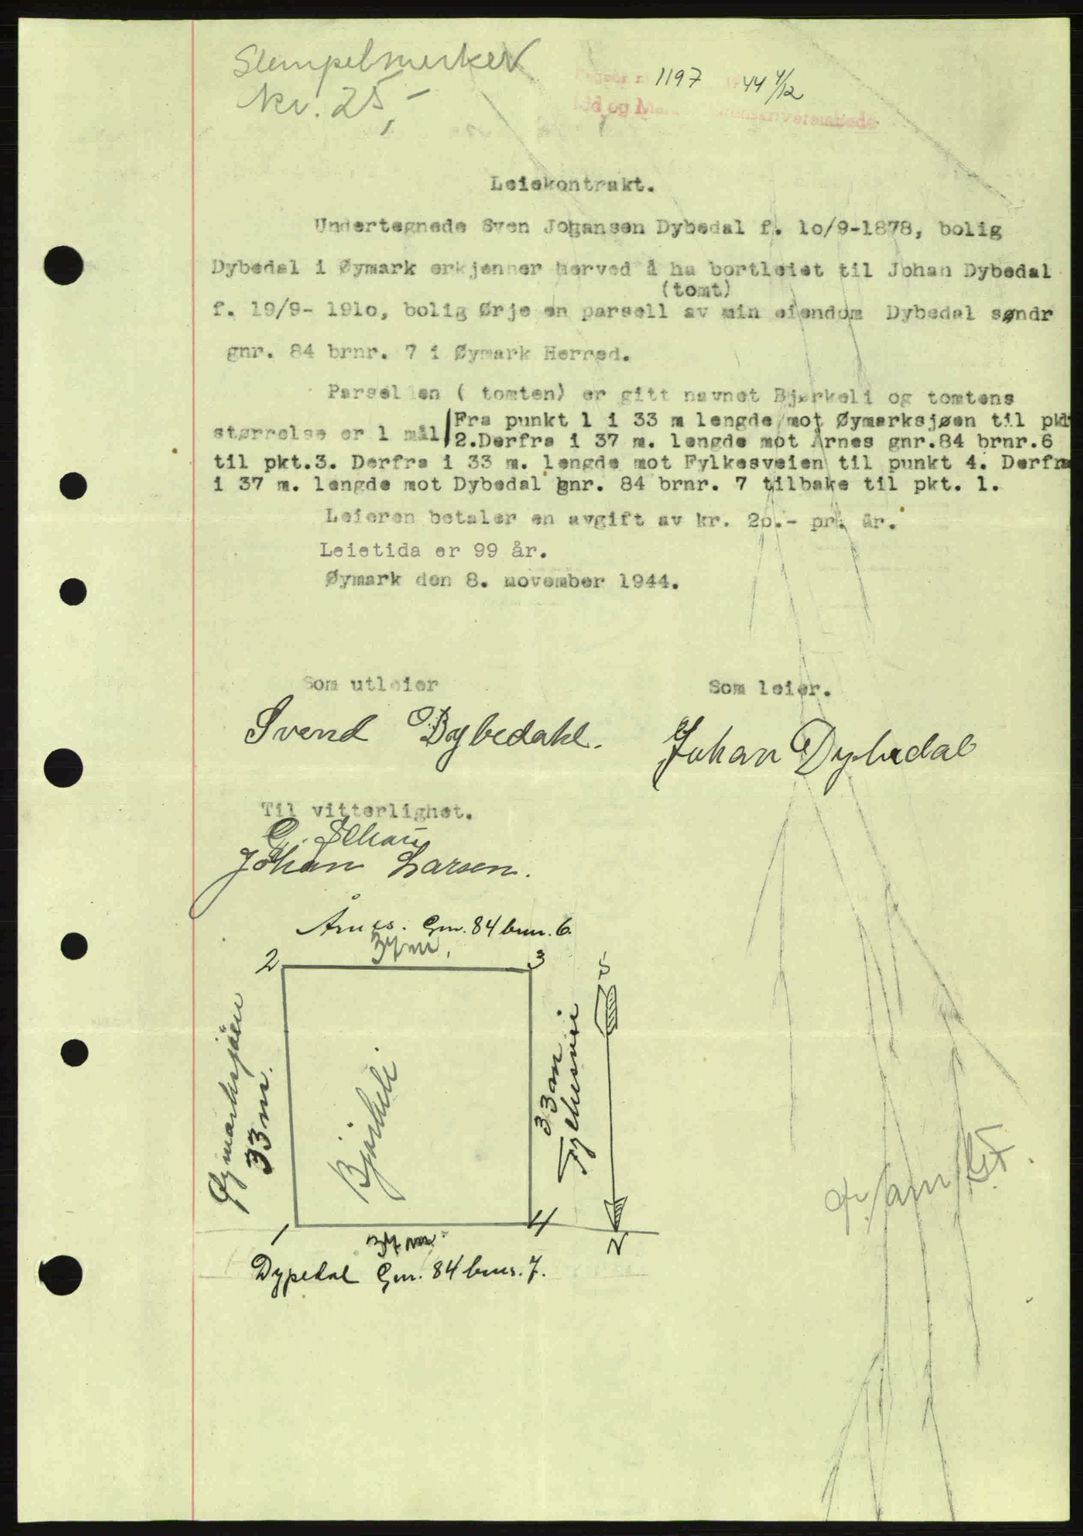 Stempelmerker
Kr. 25,-
1197 44 4/12
Leiekontrakt.
Undertegnede Sven Johansen Dybedal f. 1o/9-1878, bolig
Dybedal i Øymark erkjenner herved å ha bortleiet til Johan Dybedal
(tomt)
f. 19/9- 191o, bolig Ørje en parsell av min eiendom Dybedal søndr
gnr. 84 brnr. 7 i Øymark Herred.
Parsellen ( tomten) er gitt navnet Bjørkeli og tomtens
størrelse er 1 mål
Fra punkt 1 i 33 m lengde mot Øymarksjøen til pkt
2.Derfra i 37 m. lengde mot Årnes gnr.84 brnr.6
til pkt.3. Derfra i 33 m. lengde mot Fylkesveien til punkt 4. Derfra
i 37 m. lengde mot Dybedal gnr. 84 brnr. 7 tilbake til pkt. 1.
Leieren betaler en avgift av kr. 2o.- pr. år.
Leietida er 99 år.
Øymark den 8. november 1944.
Som utleier
Som leier.
Svend Dybedahl.
Johan Dybedal
Til vitterlighet.
Johan Larsen.
Årnes. Gnr. 84 bnr. 6.
2
3
S
Øymarksjöen
33 m.
Bjørkeli
33 m
Fylkesvei
1
4
N
Dypedal Gnr. 84 bnr. 7.